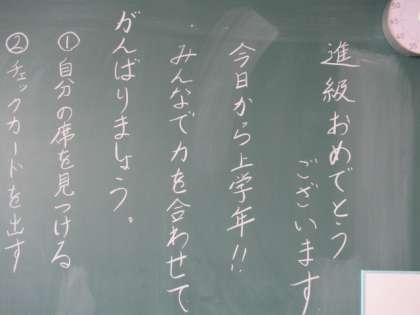 進級おめでとう
ございます
今日から上学年!!
みんなで力を合わせて
がんばりましょう。
①自分の席を見つける
②チェックカードを出す